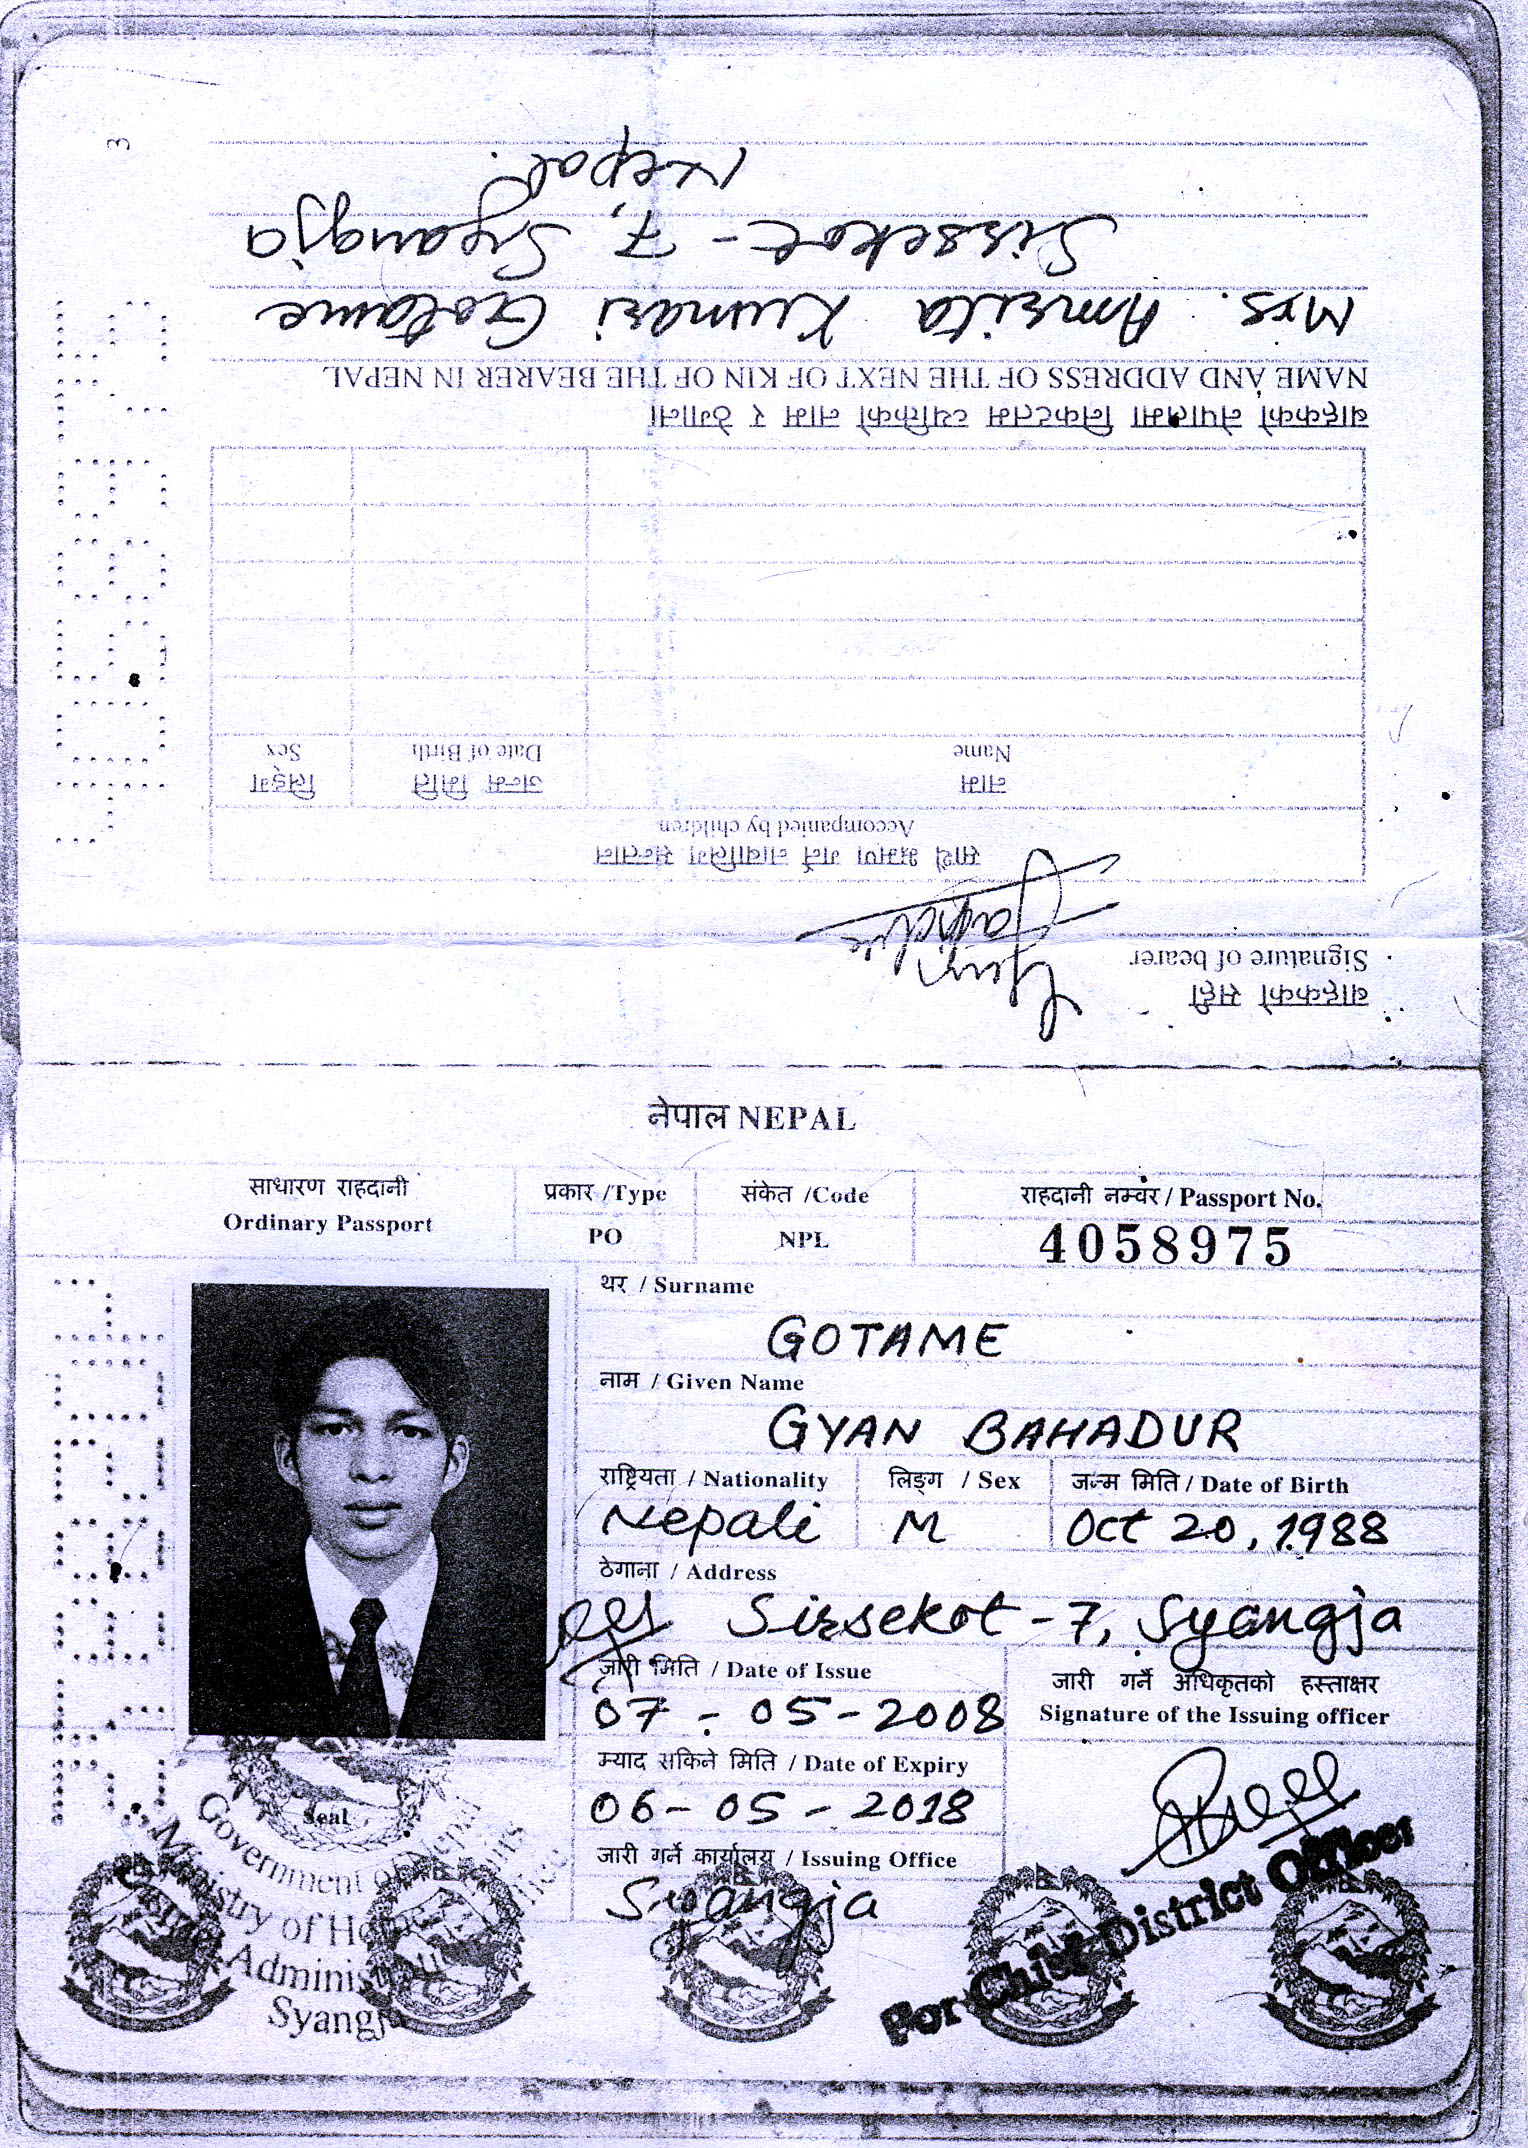 3
बाहकको सही
Signature of bearer
साथै भ्रमण गर्ने नाबालिग सन्तान
Accompanied by children
नाम
जन्म मिति
लिङ्ग
Name
Date of Birth
Sex
बाहकको नेपालमा निकटतम व्यक्तिको नाम र ठेगाना
NAME AND ADDRESS OF THE NEXT OF KIN OF THE BEARER IN NEPAL
Mrs. Amrita Kumari Gotame
Sirsekot - 7, Syangja
Nepal.
नेपाल NEPAL
साधारण राहदानी
Ordinary Passport
प्रकार /Type
PO
संकेत /Code
NPL
राहदानी नम्वर / Passport No.
4058975
थर / Surname
GOTAME
नाम / Given Name
GYAN BAHADUR
राष्ट्रियता / Nationality
लिङ्ग / Sex
जन्म मिति / Date of Birth
Nepali
M
Oct 20, 1988
ठेगाना / Address
Sirsekot - 7, Syangja
जारी मिति / Date of Issue
07 - 05 - 2008
जारी गर्ने अधिकृतको हस्ताक्षर
Signature of the Issuing officer
म्याद सकिने मिति / Date of Expiry
06 - 05 - 2018
जारी गर्ने कार्यालय / Issuing Office
Syangja
Seal
Government of Nepal
Ministry of Home
Syangja
For Chief District Officer